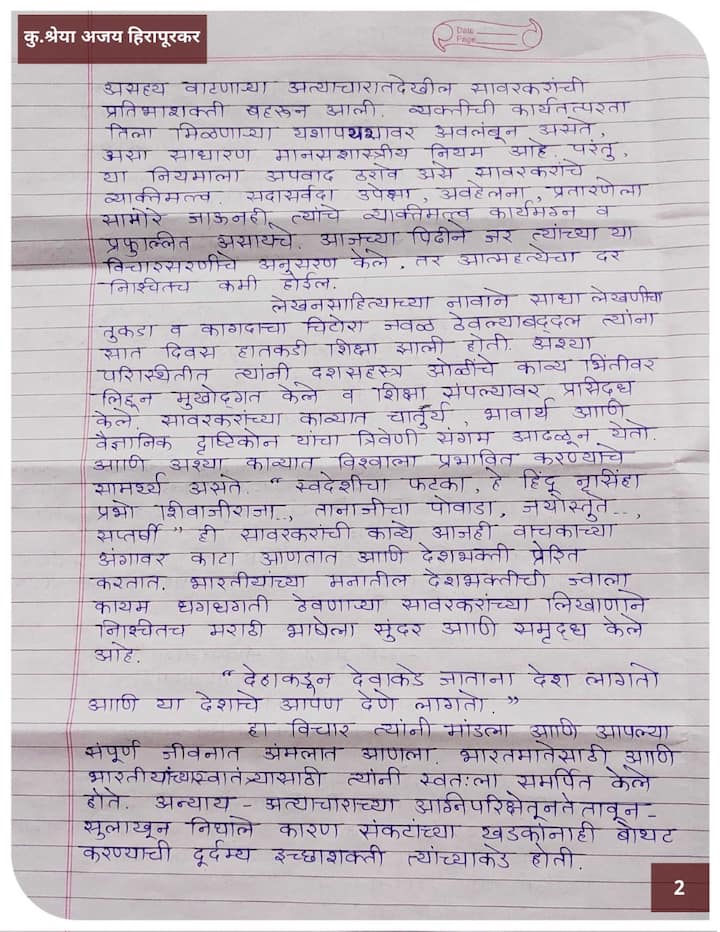 कु.श्रेया अजय हिरापूरकर
Date
Page
असह्य वाटणाऱ्या अत्याचारातदेखील सावरकरांची
प्रतिभाशक्ती बहरून आली. व्यक्तीची कार्यतत्परता
तिला मिळणाऱ्या यशापयशावर अवलंबून असते,
असा साधारण मानसशास्त्रीय नियम आहे. परंतु,
या नियमाला अपवाद ठरावे असे सावरकरांचे
व्यक्तिमत्त्व. सदासर्वदा उपेक्षा, अवहेलना, प्रतारणेला
सामोरे जाऊनही त्यांचे व्यक्तिमत्त्व कार्यमग्न व
प्रफुल्लित असायचे. आजच्या पिढीने जर त्यांच्या या
विचारसरणीचे अनुसरण केले, तर आत्महत्येचा दर
निश्चितच कमी होईल.
लेखनसाहित्याच्या नावाने साधा लेखणीचा
तुकडा व कागदाचा चिटोरा जवळ ठेवल्याबद्दल त्यांना
सात दिवस हातकडी शिक्षा झाली होती. अश्या
परिस्थितीत त्यांनी दशसहस्त्र ओळींचे काव्य भिंतीवर
लिहून मुखोद्गत केले व शिक्षा संपल्यावर प्रसिद्ध
केले. सावरकरांच्या काव्यात चातुर्य, भावार्थ आणि
वैज्ञानिक दृष्टिकोन यांचा त्रिवेणी संगम आढळून येतो.
आणि अश्या काव्यात विश्वाला प्रभावित करण्याचे
सामर्थ्य असते. "स्वदेशीचा फटका, हे हिंदू नृसिंहा
प्रभो शिवाजीराजा.., तानाजीचा पोवाडा, जयोस्तुते..,
सप्तर्षी" ही सावरकरांची काव्ये आजही वाचकाच्या
अंगावर काटा आणतात आणि देशभक्ती प्रेरित
करतात. भारतीयांच्या मनातील देशभक्तीची ज्वाला
कायम धगधगती ठेवणाऱ्या सावरकरांच्या लिखाणाने
निश्चितच मराठी भाषेला सुंदर आणि समृद्ध केले
आहे.
"देहाकडून देवाकडे जाताना देश लागतो
आणि या देशाचे आपण देणे लागतो."
हा विचार त्यांनी मांडला आणि आपल्या
संपूर्ण जीवनात अंमलात आणला. भारतमातेसाठी आणि
भारतीयांच्यास्वातंत्र्यासाठी त्यांनी स्वत:ला समर्पित केले
होते. अन्याय - अत्याचाराच्या अग्निपरिक्षेतूनते तावून-
सुलाखून निघाले कारण संकटांच्या खडकांनाही बोथट
करण्याची दूर्दम्य इच्छाशक्ती त्यांच्याकडे होती.
2